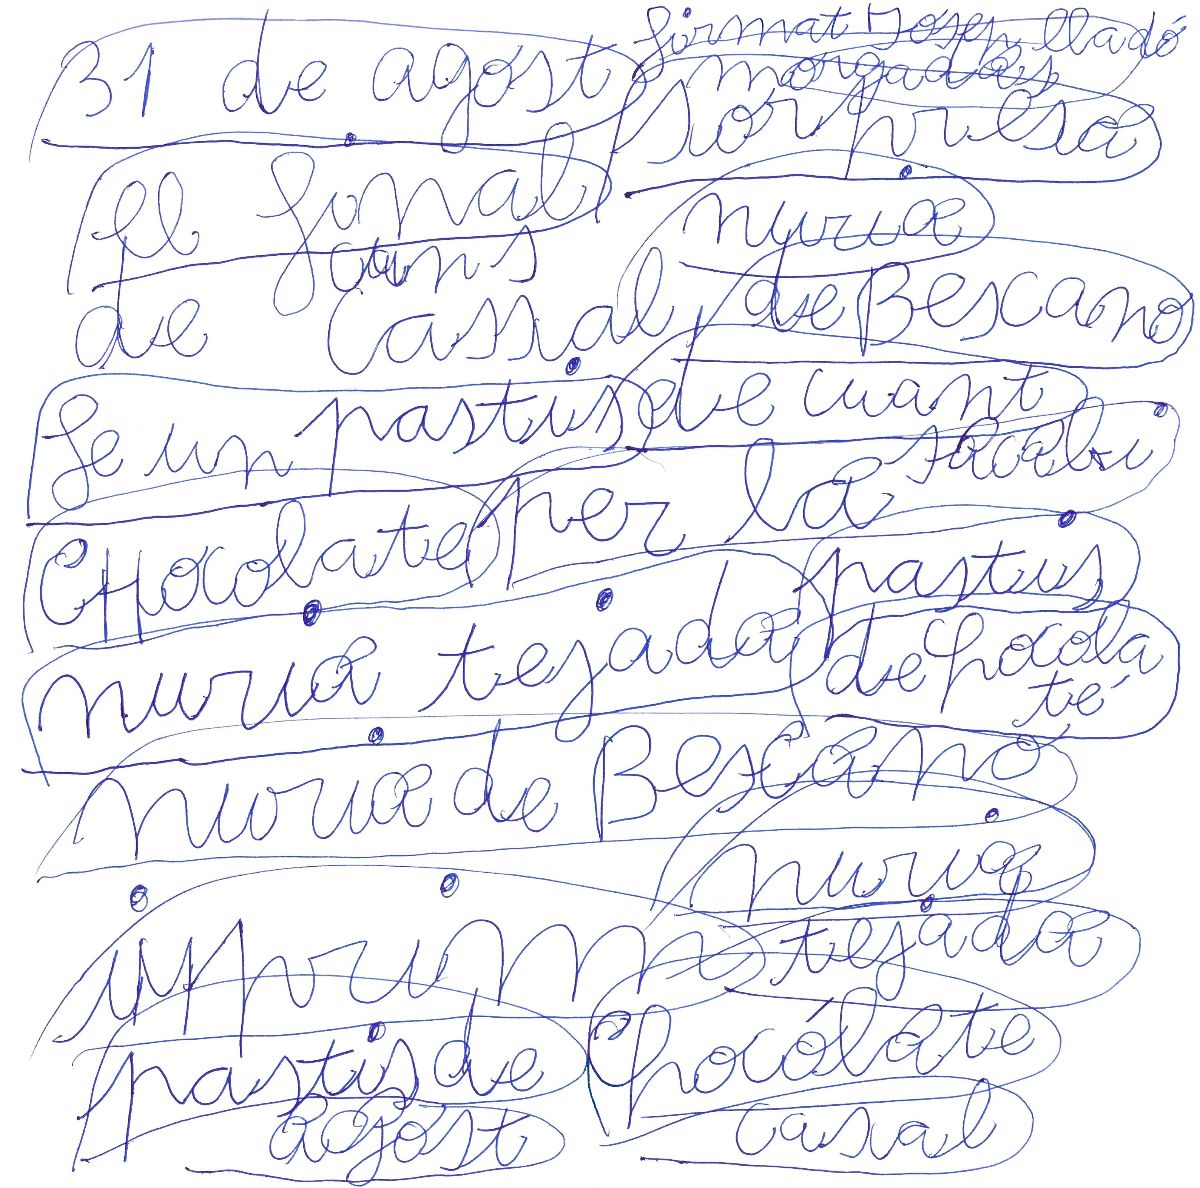 31 de agost firmat Josep lladó
morgadas
sorpresa
el final nuria
de cassal de Bescano
fe un pastis de cuant
CHocolate per la sacabi
pastis
nuria tejada de chocola
té
nuria de Bescano
nuria
imprimi tejada
pastis de chocolate
agost casal